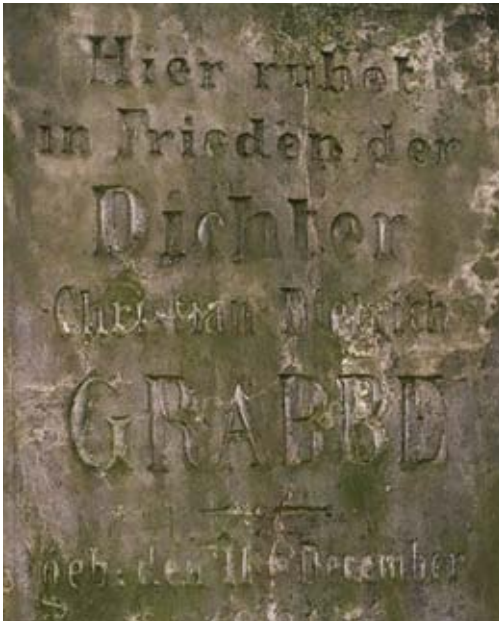 Hier ruhet
in Frieden der
Dichter
Christian Dietrich
GRABBE
geb: den 11ten December